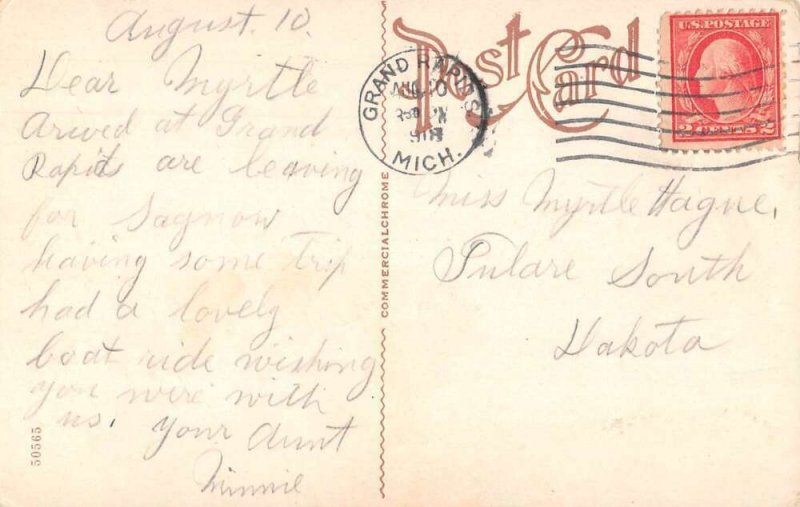 August. 10.
Dear Myrtle
Arived at Grand
Rapids are leaving
for Sagnow
having some trip
had a lovely
boat ride wishing
you were with
us. your Aunt
Minnie
50565
COMMERCIALCHROME
Post Card
GRAND RAPIDS
AUG 10
MICH.
U.S. POSTAGE
2 CENTS 2
Miss Myrtle Hagne,
Tulare South
Dakota